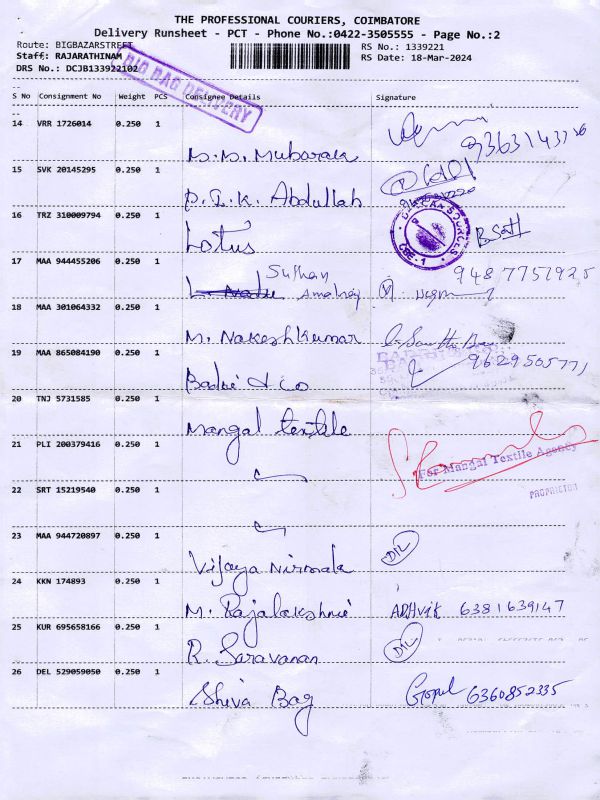 THE PROFESSIONAL COURIERS, COIMBATORE
Delivery Runsheet - PCT - Phone No.:0422-3505555 - Page No.:2
Route: BIGBAZARSTREET
RS No.: 1339221
Staff: RAJARATHINAM
RS Date: 18-Mar-2024
DRS No.: DCJB133922102
BIG BAG DELIVERY
S No Consignment No Weight PCS Consignee Details Signature
14 VRR 1726014 0.250 1
M. Mubarak
15 SVK 20145295 0.250 1
Abdullah
16 TRZ 310009794 0.250 1
Lotus
CBE-1
17 MAA 944455206 0.250 1
9487751925
18 MAA 301064332 0.250 1
M. Nakeshkumar
19 MAA 865084190 0.250 1
9629505771
Badri & co
20 TNJ 5731585 0.250 1
Mangal textile
21 PLI 200379416 0.250 1
For Mangal Textile Agency
PROPRIETOR
22 SRT 15219540 0.250 1
23 MAA 944720897 0.250 1
Vijaya Nirmala
D/L
24 KKN 174893 0.250 1
M. Rajalakshmi 6381639147
25 KUR 695658166 0.250 1
R. Saravanan
D/L
26 DEL 529059050 0.250 1
Shiva Bag Gopal 6360852335